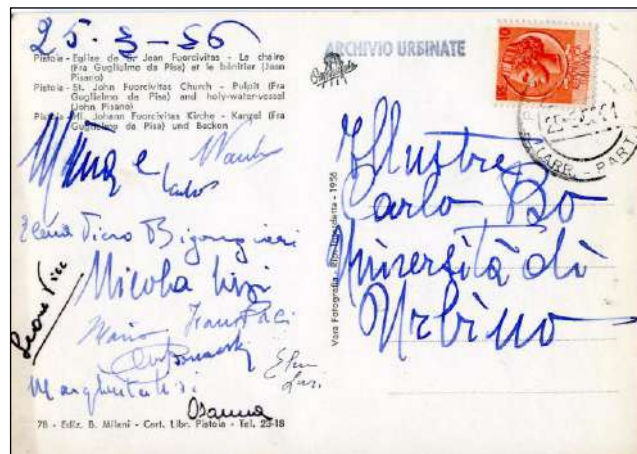 25-3-56
ARCHIVIO URBINATE
Pistoia - Eglise de St. Jean Fuorcivitas - La chaire
(Fra Guglielmo da Pisa) et le bénitier (Jean
Pisano)
Pistoia - St. John Fuorcivitas Church - Pulpit (Fra
Guglielmo da Pisa) and holy-water-vessel
(John Pisano)
Pistoia - Hl. Johann Fuorcivitas Kirche - Kanzel (Fra
Guglielmo da Pisa) und Becken
e
Elena Piero Bigongiari
Nicola Lisi
Mario
Margherita Lisi
Osanna
78 - Ediz. B. Milani - Cart. Libr. Pistoia - Tel. 23-18
Vera Fotografia - 1956
10
ARR. - PART
Illustre
Carlo Bo
Università di
Urbino